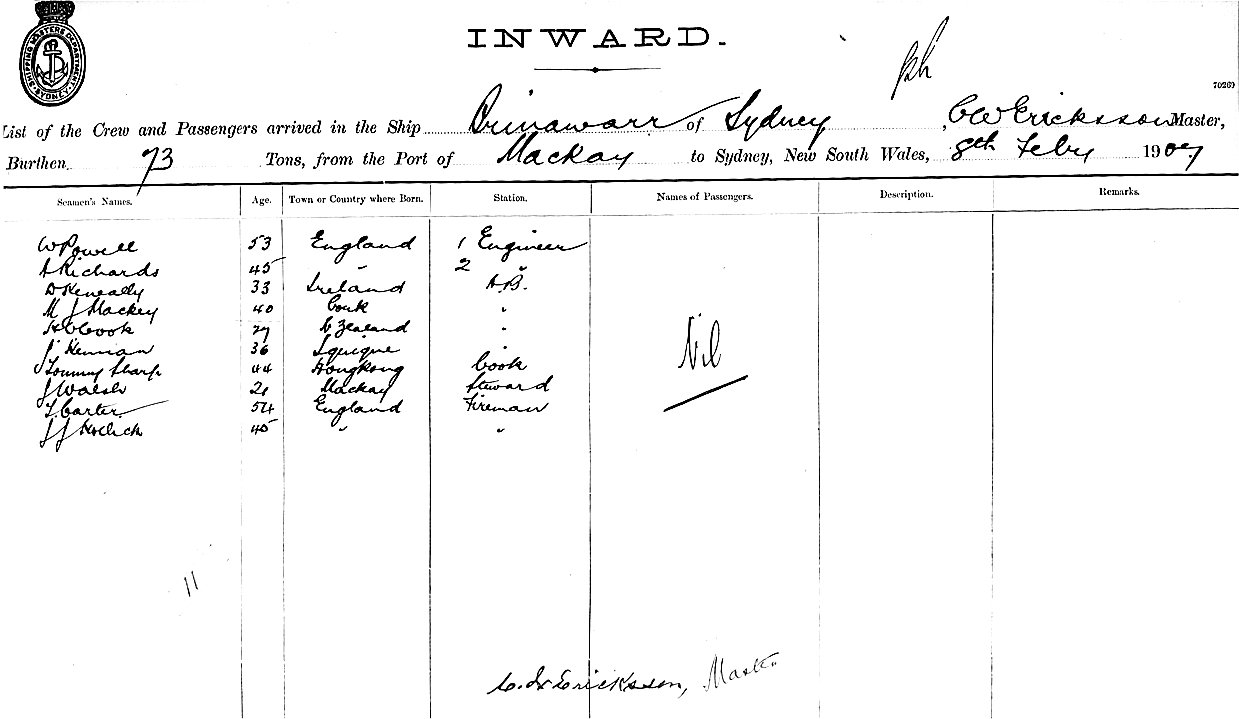 SHIPPING MASTERS DEPARTMENT SYDNEY
INWARD.
70269
List of the Crew and Passengers arrived in the Ship of Sydney, C W Ericksson Master,
Burthen 73 Tons, from the Port of Mackay to Sydney, New South Wales, 8th Feby 1907
Seamen's Names. Age. Town or Country where Born. Station. Names of Passengers. Description. Remarks.
W Powell 53 England 1 Engineer
A Richards 45 " 2 "
D Keneally 33 Ireland A.B.
M J Mackey 40 Cork "
H C Cook 27 N Zealand "
Kennan 36 Iquique "
Tommy Sharp 44 Hongkong Cook
J Walsh 21 Mackay Steward
T Carter 54 England Fireman
J J 45 " "
Nil
11
C. W Ericksson, Master